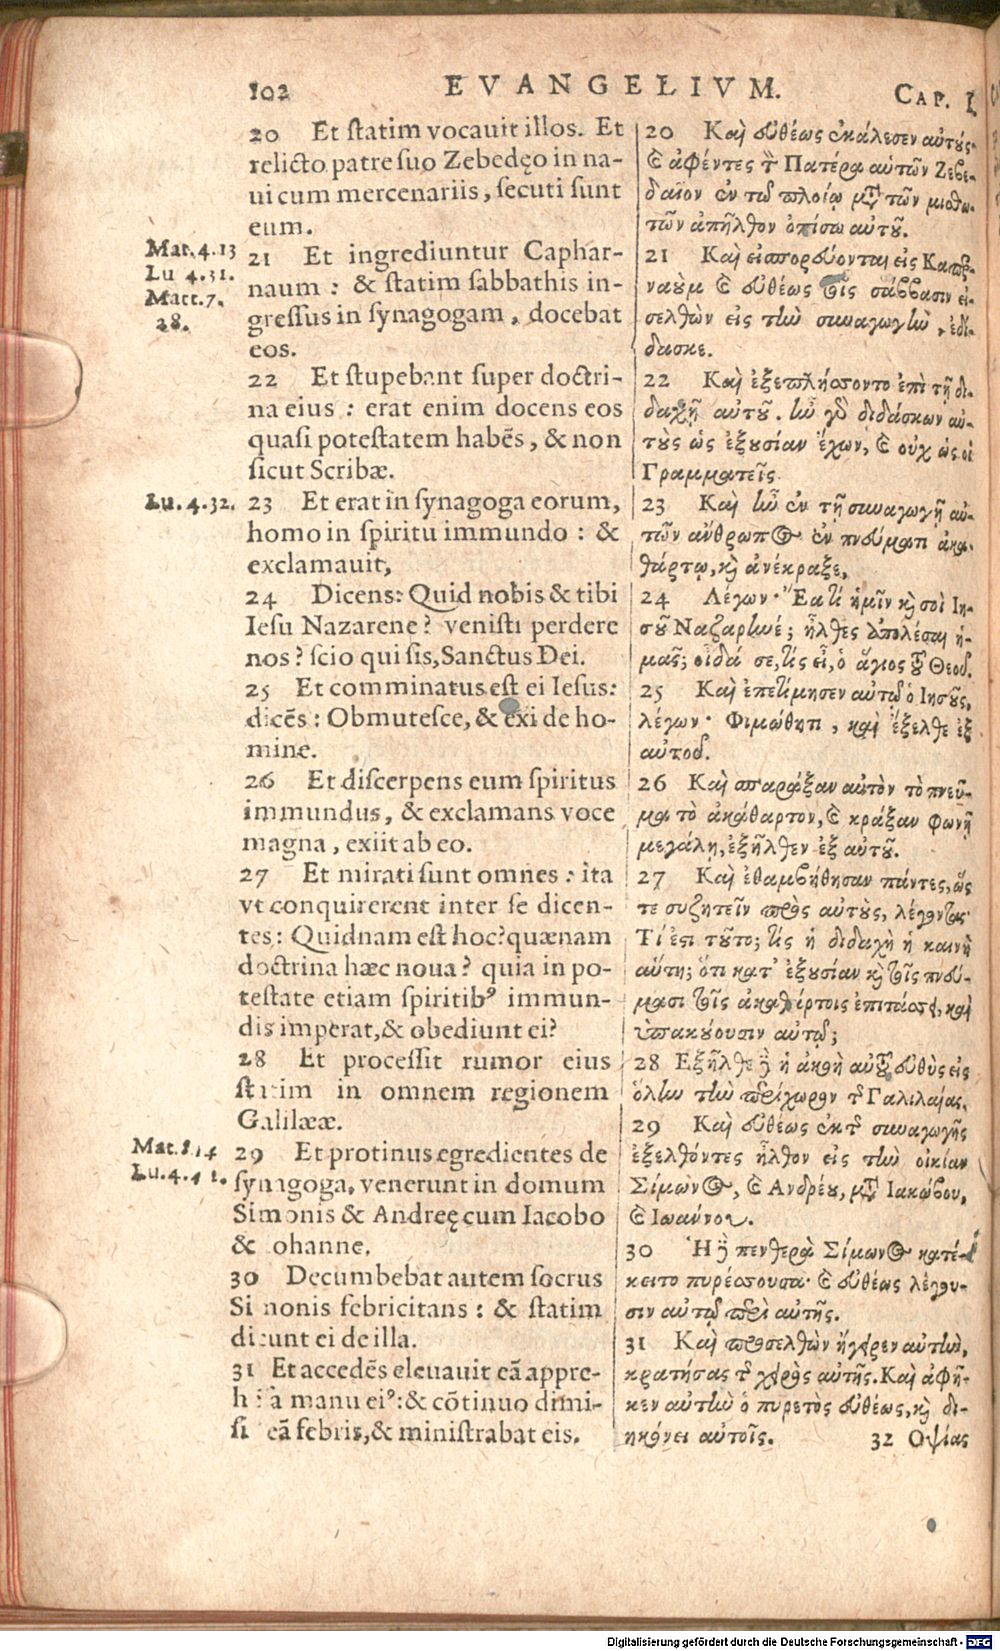 102 EVANGELIVM. CAP. I.
20 Et ſtatim vocauit illos. Et
relicto patre ſuo Zebedęo in na-
ui cum mercenariis, ſecuti ſunt
eum.
Mat. 4.13
Lu 4.31.
Matt. 7.
28.
21 Et ingrediuntur Caphar-
naum : & ſtatim ſabbathis in-
greſſus in ſynagogam, docebat
eos.
22 Et ſtupebant ſuper doctri-
na eius : erat enim docens eos
quaſi poteſtatem habẽs, & non
ſicut Scribæ.
Lu. 4.32.
23 Et erat in ſynagoga eorum,
homo in ſpiritu immundo : &
exclamauit,
24 Dicens: Quid nobis & tibi
Ieſu Nazarene? veniſti perdere
nos? ſcio qui ſis, Sanctus Dei.
25 Et comminatus eſt ei Ieſus:
dicẽs : Obmuteſce, & exi de ho-
mine.
26 Et diſcerpens eum ſpiritus
immundus, & exclamans voce
magna, exiit ab eo.
27 Et mirati ſunt omnes : ita
vt conquirerent inter ſe dicen-
tes: Quidnam eſt hoc? quænam
doctrina hæc noua? quia in po-
teſtate etiam ſpiritibꝰ immun-
dis imperat, & obediunt ei?
28 Et proceſſit rumor eius
ſtatim in omnem regionem
Galilææ.
Mat. 8.14
Lu. 4.41.
29 Et protinus egredientes de
ſynagoga, venerunt in domum
Simonis & Andreę cum Iacobo
& ohanne.
30 Decumbebat autem ſocrus
Si nonis febricitans : & ſtatim
dicunt ei de illa.
31 Et accedẽs eleuauit eã appre-
h ſa manu eiꝰ: & cõtinuo dimi-
ſi eã febris, & miniſtrabat eis.
20 Καὶ εὐθέως ἐκάλεσεν αὐτούς·
καὶ ἀφέντες τὸν Πατέρα αὐτῶν Ζεβε-
δαῖον ἐν τῷ πλοίῳ μετὰ τῶν μισθω-
τῶν ἀπῆλθον ὀπίσω αὐτοῦ.
21 Καὶ εἰσπορεύονται εἰς Καπερ-
ναοὺμ καὶ εὐθέως τοῖς σάββασιν εἰ-
σελθὼν εἰς τὴν συναγωγὴν, ἐδί-
δασκε.
22 Καὶ ἐξεπλήσσοντο ἐπὶ τῇ δι-
δαχῇ αὐτοῦ. ἦν γὰρ διδάσκων αὐ-
τοὺς ὡς ἐξουσίαν ἔχων, καὶ οὐχ ὡς οἱ
Γραμματεῖς.
23 Καὶ ἦν ἐν τῇ συναγωγῇ αὐ-
τῶν ἄνθρωπος ἐν πνεύματι ἀκα-
θάρτῳ, καὶ ἀνέκραξε,
24 Λέγων· Ἔα τί ἡμῖν καὶ σοὶ Ἰη-
σοῦ Ναζαρηνέ; ἦλθες ἀπολέσαι ἡ-
μᾶς; οἶδά σε, τίς εἶ, ὁ ἅγιος τοῦ Θεοῦ.
25 Καὶ ἐπετίμησεν αὐτῷ ὁ Ἰησοῦς,
λέγων· Φιμώθητι, καὶ ἔξελθε ἐξ
αὐτοῦ.
26 Καὶ σπαράξαν αὐτὸν τὸ πνεῦ-
μα τὸ ἀκάθαρτον, καὶ κράξαν φωνῇ
μεγάλῃ, ἐξῆλθεν ἐξ αὐτοῦ.
27 Καὶ ἐθαμβήθησαν πάντες, ὥς
τε συζητεῖν πρὸς αὐτοὺς, λέγοντας·
Τί ἐστι τοῦτο; τίς ἡ διδαχὴ ἡ καινὴ
αὕτη; ὅτι κατ' ἐξουσίαν καὶ τοῖς πνεύ-
μασι τοῖς ἀκαθάρτοις ἐπιτάσσει, καὶ
ὑπακούουσιν αὐτῷ;
28 Ἐξῆλθε δὲ ἡ ἀκοὴ αὐτοῦ εὐθὺς εἰς
ὅλην τὴν περίχωρον τῆς Γαλιλαίας.
29 Καὶ εὐθέως ἐκ τῆς συναγωγῆς
ἐξελθόντες ἦλθον εἰς τὴν οἰκίαν
Σίμωνος, καὶ Ἀνδρέου, μετὰ Ἰακώβου,
καὶ Ἰωάννου.
30 Ἡ δὲ πενθερὰ Σίμωνος κατέ-
κειτο πυρέσσουσα· καὶ εὐθέως λέγου-
σιν αὐτῷ περὶ αὐτῆς.
31 Καὶ προσελθὼν ἤγειρεν αὐτὴν,
κρατήσας τῆς χειρὸς αὐτῆς. Καὶ ἀφῆ-
κεν αὐτὴν ὁ πυρετὸς εὐθέως, καὶ δι-
ηκόνει αὐτοῖς. 32 Ὀψίας
Digitalisierung gefördert durch die Deutsche Forschungsgemeinschaft - DFG